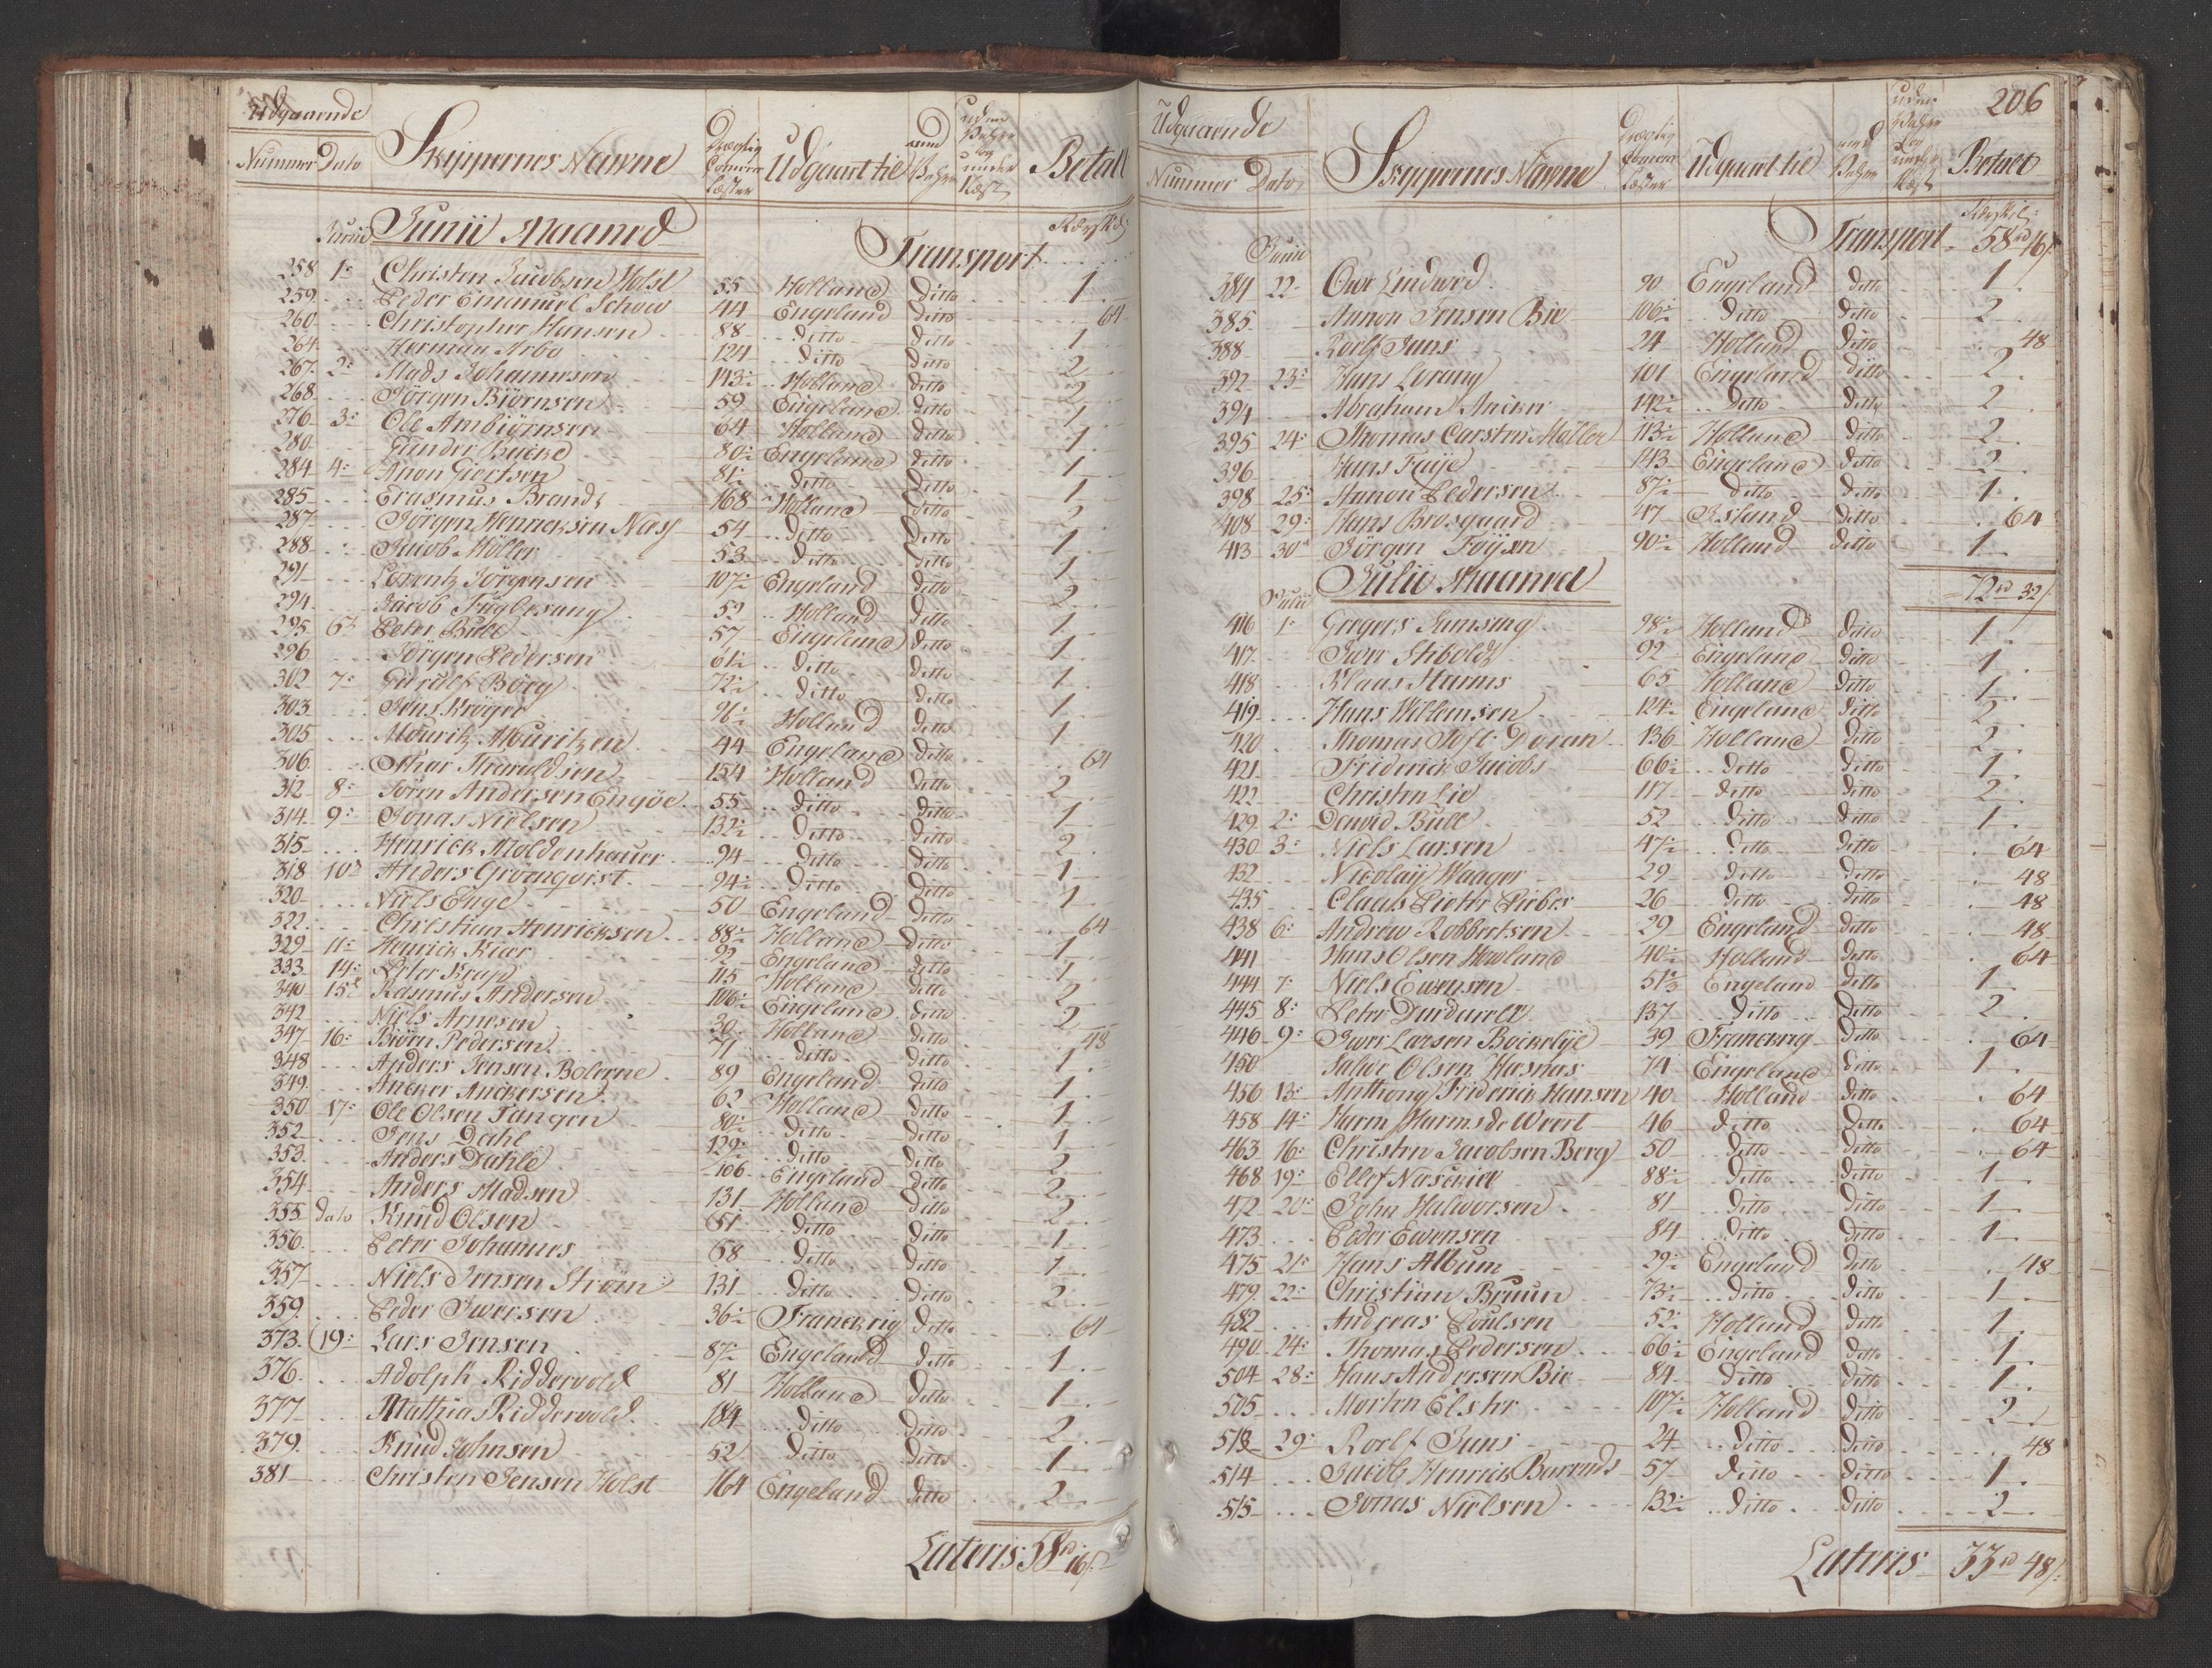 Udgaaende
Nummer Dato Skippernes Navne Drægtig Comerce Læster Udgaaet til Betalt
Junii Maaned
Junii Transport
258 1: Christen Jacobsen Holst 55 Holland ditto 1
259 Peder Emanuel Schow 44 Engeland ditto 64
260 Christopher Hansen 88 ditto ditto 1
264 Herman Arbo 124 ditto ditto 2
267 2: Mads Johannesen 143½ Holland ditto 2
268 Jörgen Biörnsen 59 Engeland ditto 1
276 3: Ole Ambiörnsen 64 Holland ditto 1
280 Gunder Bucke 80½ Engeland ditto 1
284 4: Anon Giertsen 81½ ditto ditto 1
285 Erasmus Brandt 168 Holland ditto 2
287 Jörgen Henricksen Næss 54 ditto ditto 1
288 Jacob Möller 53 ditto ditto 1
291 Lorentz Jörgensen 107½ Engeland ditto 2
294 Jacob Fuglesang 52 Holland ditto 1
295 6: Peter Bull 57 Engeland ditto 1
296 Jörgen Pedersen 61½ ditto ditto 1
302 7: Gurulf Börg 72½ ditto ditto 1
303 Jens Kröger 96½ Holland ditto 1
305 Mouritz Mouritzen 44 Engeland ditto 64
306 Ahar Haraldsen 154 Holland ditto 2
312 8: Sören Andersen Engöe 55 ditto ditto 1
314 9: Jonas Nielsen 132½ ditto ditto 2
315 Henrick Moldenhauer 94 ditto ditto 1
318 10: Anders Groenqvist 94½ ditto ditto 1
320 Niels Enge 50 Engeland ditto 64
322 Christian Henricksen 88½ Holland ditto 1
329 11: Henrick Kiær 92 Engeland ditto 1
333 14: Peter Krap 115 Holland ditto 2
340 15: Rasmus Andersen 106½ Engeland ditto 2
342 Niels Arnesen 30 Holland ditto 48
347 16: Biörn Pedersen 71 ditto ditto 1
348 Anders Jensen Bolerne 89 Engeland ditto 1
349 Ancker Anckersen 62 Holland ditto 1
350 17: Ole Olsen Tangen 80½ ditto ditto 1
352 Jens Dahl 129½ ditto ditto 2
353 Anders Dahle 106 Engeland ditto 2
354 Anders Madsen 131 Holland ditto 2
355 dato Knud Olsen 61 ditto ditto 1
356 Peter Johannes 68 ditto ditto 1
357 Niels Jensen Ström 131 ditto ditto 2
359 Peder Iwersen 36½ Franckrig ditto 64
373 19: Lars Jensen 87½ Engeland ditto 1
376 Adolph Riddervold 81 Holland ditto 1
377 Mathias Riddervold 184 ditto ditto 2
379 Knud Johnsen 52 ditto ditto 1
381 Christen Jensen Holst 164 Engeland ditto 2
Lateris 58 rd 16 s
206
Udgaaende
Nummer Dato Skippernes Navne Drægtig Comerce Læster Udgaaet til Betalt
Junii Transport 58 rd 16 s
384 22 Owe Lindwed 90 Engeland ditto 1
385 Aanon Jensen Bie 106½ ditto ditto 2
388 Roelf Jans 24 Holland ditto 48
392 23: Hans Lorang 101 Engeland ditto 2
394 Abraham Ancker 142½ ditto ditto 2
395 24: Thomas Carsten Möller 113½ Holland ditto 2
396 Hans Faije 143 Engeland ditto 2
398 25: Aanon Pedersen 87½ ditto ditto 1
408 29: Hans Brosgaard 47 Island ditto 64
413 30 Jörgen Föijen 90½ Holland ditto 1
72 rd 32 s
Julii Maaned
Julii
416 1: Gregers Lemsing 98½ Holland ditto 1
417 Iwer Stiboldt 92 Engeland ditto 1
418 Klaas Harms 65 Holland ditto 1
419 Hans Willemsen 124½ Engeland ditto 2
420 Thomas Toft Doran 136 Holland ditto 2
421 Friderick Jacobs 66½ ditto ditto 1
422 Christen Lie 117 ditto ditto 2
429 2: Dawid Bull 52 ditto ditto 1
430 3: Niels Larsen 47½ ditto ditto 64
432 Nicolaij Waager 29 ditto ditto 48
435 Claas Pieter Piebes 26 ditto ditto 48
438 6: Andrew Robbertsen 29 Engeland ditto 48
441 Hans Olsen Howland 40½ Holland ditto 64
444 7: Niels Ewensen 51½ Engeland ditto 1
445 8: Peter Durdarell 137 ditto ditto 2
446 9: Iwer Larsen Boickelije 39 Franckrig ditto 64
450 Salve Olsen Hasnas 74 Engeland ditto 1
456 13: Anthony Friderick Hansen 40 Holland ditto 64
458 14: Harm Harms de Weert 46 ditto ditto 64
463 16: Christen Jacobsen Berg 50 ditto ditto 64
468 19: Ellef Nasckiel 88½ ditto ditto 1
472 20: John Halworsen 81 ditto ditto 1
473 Peder Ewensen 84 ditto ditto 1
475 21: Hans Album 29½ Engeland ditto 48
479 22: Christian Bruun 73½ ditto ditto 1
482 Andreas Poulsen 52½ Holland ditto 1
490 24: Thomas Pedersen 66½ Engeland ditto 1
504 28: Hans Andersen Bie 84 ditto ditto 1
505 Morten Elster 107½ Holland ditto 2
513 29: Roelf Jans 24 ditto ditto 48
514 Jacob Henrick Barends 57 ditto ditto 1
515 Jonas Nielsen 132½ ditto ditto 2
Lateris 33 rd 48 s